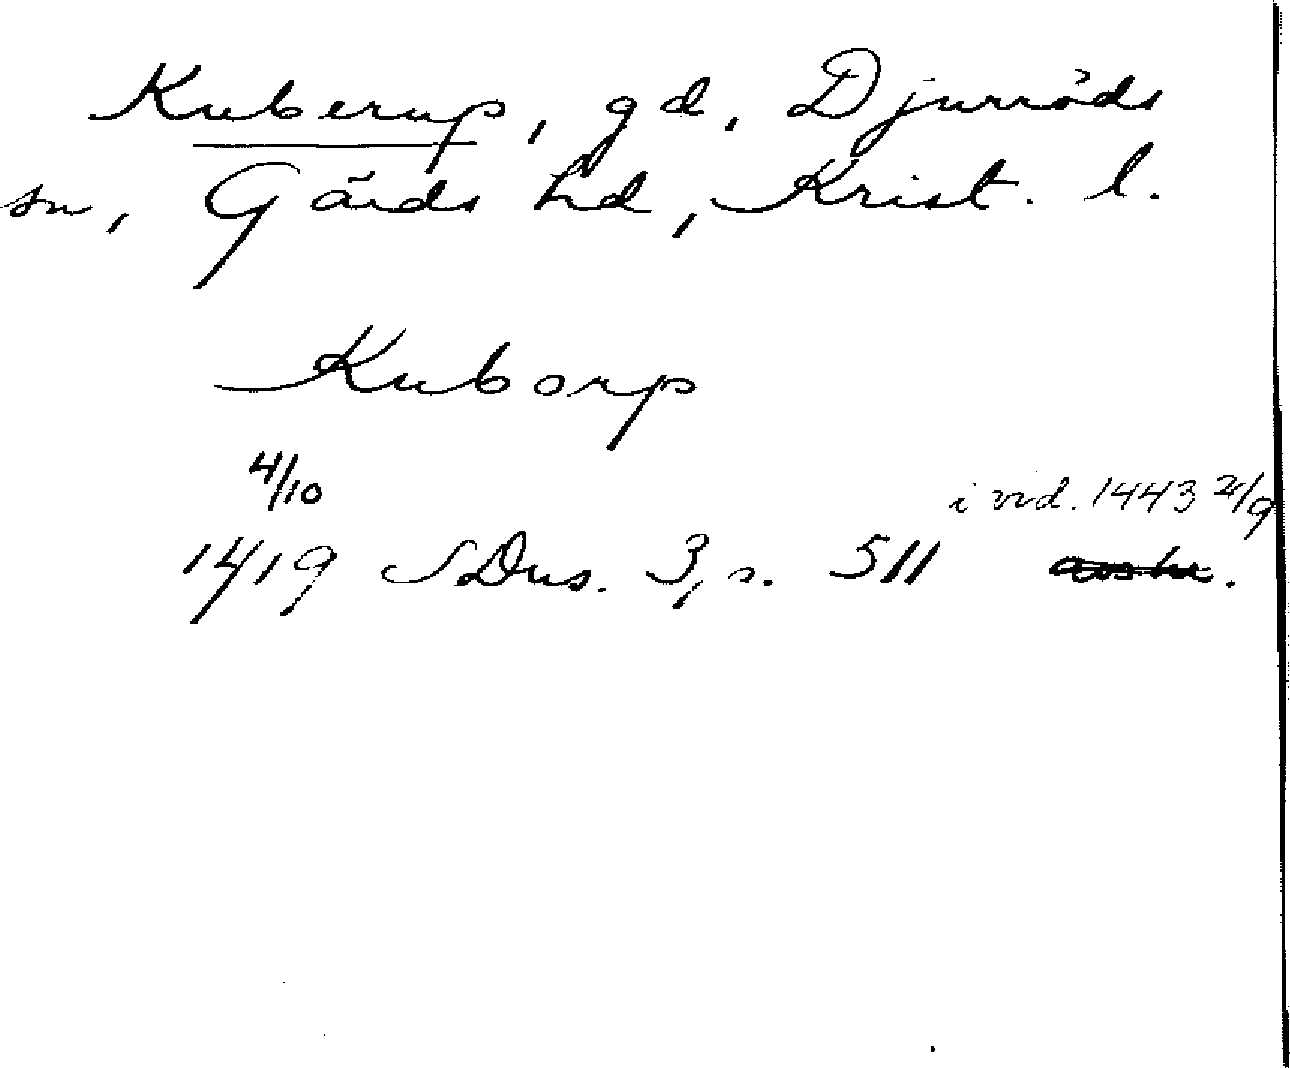 Kuberup, gd, Djurröds
sn, Gärds hd, Krist. l.
Kuborp
4/10
i vid. 1443 2/9
1419 SDns. 3, s. 511 avskr.